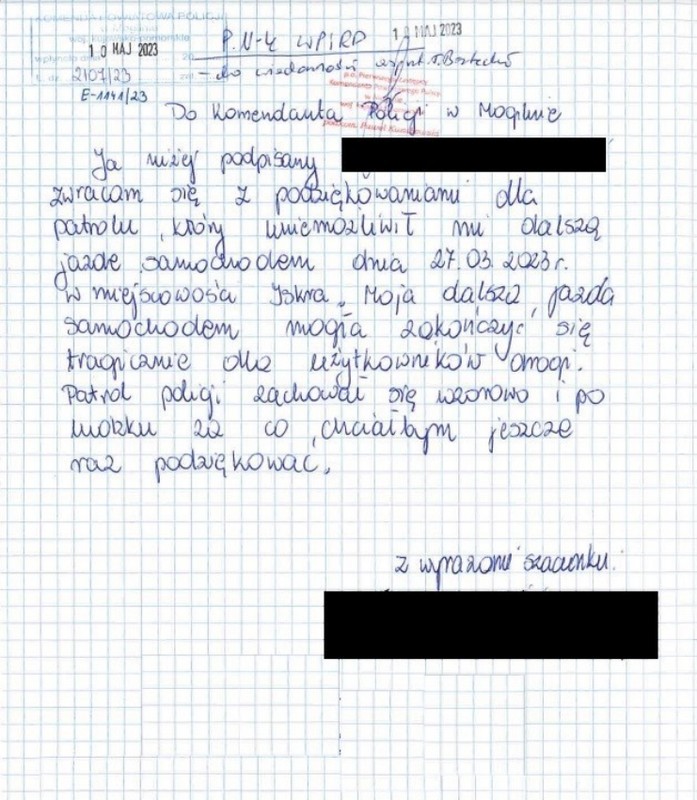 KOMENDA POWIATOWA POLICJI
w Mogilnie
woj. kujawsko-pomorskie
10 MAJ 2023
wpłynęło dnia 20
L. dz. 2107/23 zał.
E-1141/23
P.N-k WPiRD
10 MAJ 2023
- do wiadomości
Do Komendanta Policji w Mogilnie
Ja niżej podpisany
zwracam się z podziękowaniami dla
patrolu, który uniemożliwił mi dalszą
jazdę samochodem dnia 27.03.2023r.
w miejscowości Iskra. Moja dalsza jazda
samochodem mogła zakończyć się
tragicznie dla użytkowników drogi.
Patrol policji zachował się wzorowo i po
ludzku za co chciałbym jeszcze
raz podziękować.
Z wyrazami szacunku.